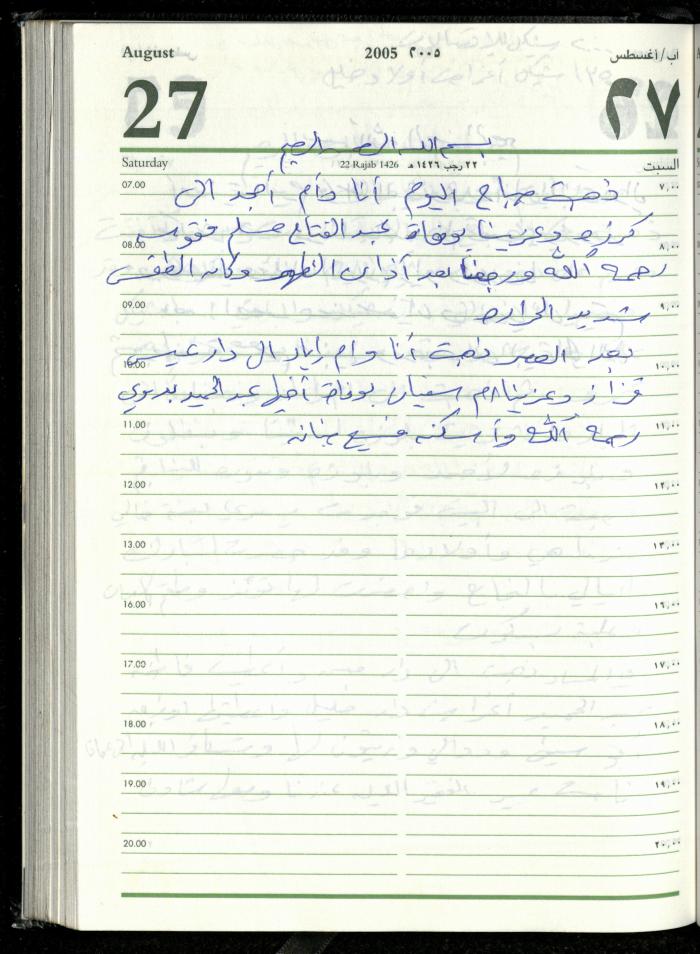 August 2005 ٢٠٠٥ آب/أغسطس
27 ٢٧
بسم الله الرحمن الرحيم
Saturday 22 Rajab 1426 ٢٢ رجب ١٤٢٦ هـ السبت
07.00 ٧,٠٠
ذهبت صباح اليوم أنا وأم أمجد الى
كرزه وعزينا بوفاة عبد الفتاح مسلم
08.00 ٨,٠٠
رحمه الله ورجعنا بعد آذان الظهر وكان الطقس
09.00 ٩,٠٠
شديد الحرارة
بعد العصر ذهبت أنا وام زياد ال دار عيسى
10.00 ١٠,٠٠
قزاز وعزينا ام سفيان بوفاة أخيها عبد الحميد بدوي
11.00 ١١,٠٠
رحمه الله وأسكنه فسيح جنانه
12.00 ١٢,٠٠
13.00 ١٣,٠٠
16.00 ١٦,٠٠
17.00 ١٧,٠٠
18.00 ١٨,٠٠
19.00 ١٩,٠٠
20.00 ٢٠,٠٠